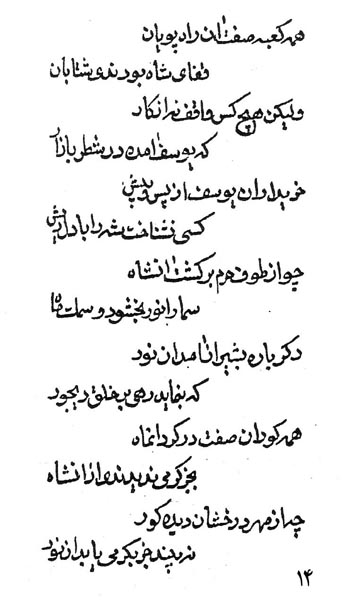 همه کعبه صفت ان راد پویان
قفای شاه بودندی شتابان
ولیکن هیچ کس واقف نه زانکار
که یوسف امده در شطر بازار
خریداران یوسف از پس و پیش
کسی نشناخت شه را با دل ریش
چو از طوف حرم برگشت انشاه
سما را نور بخشود و سمت ماه
دگر باره بشیر انا مدان نود
که بنماید رهی بر خلق دیجور
همه کوران صفت در گرد انماه
بجز گرمی ندیدندی از انشاه
چه از مهر درخشان دیده کور
نه بیند جز که گرمی یابد از نور
۱۴